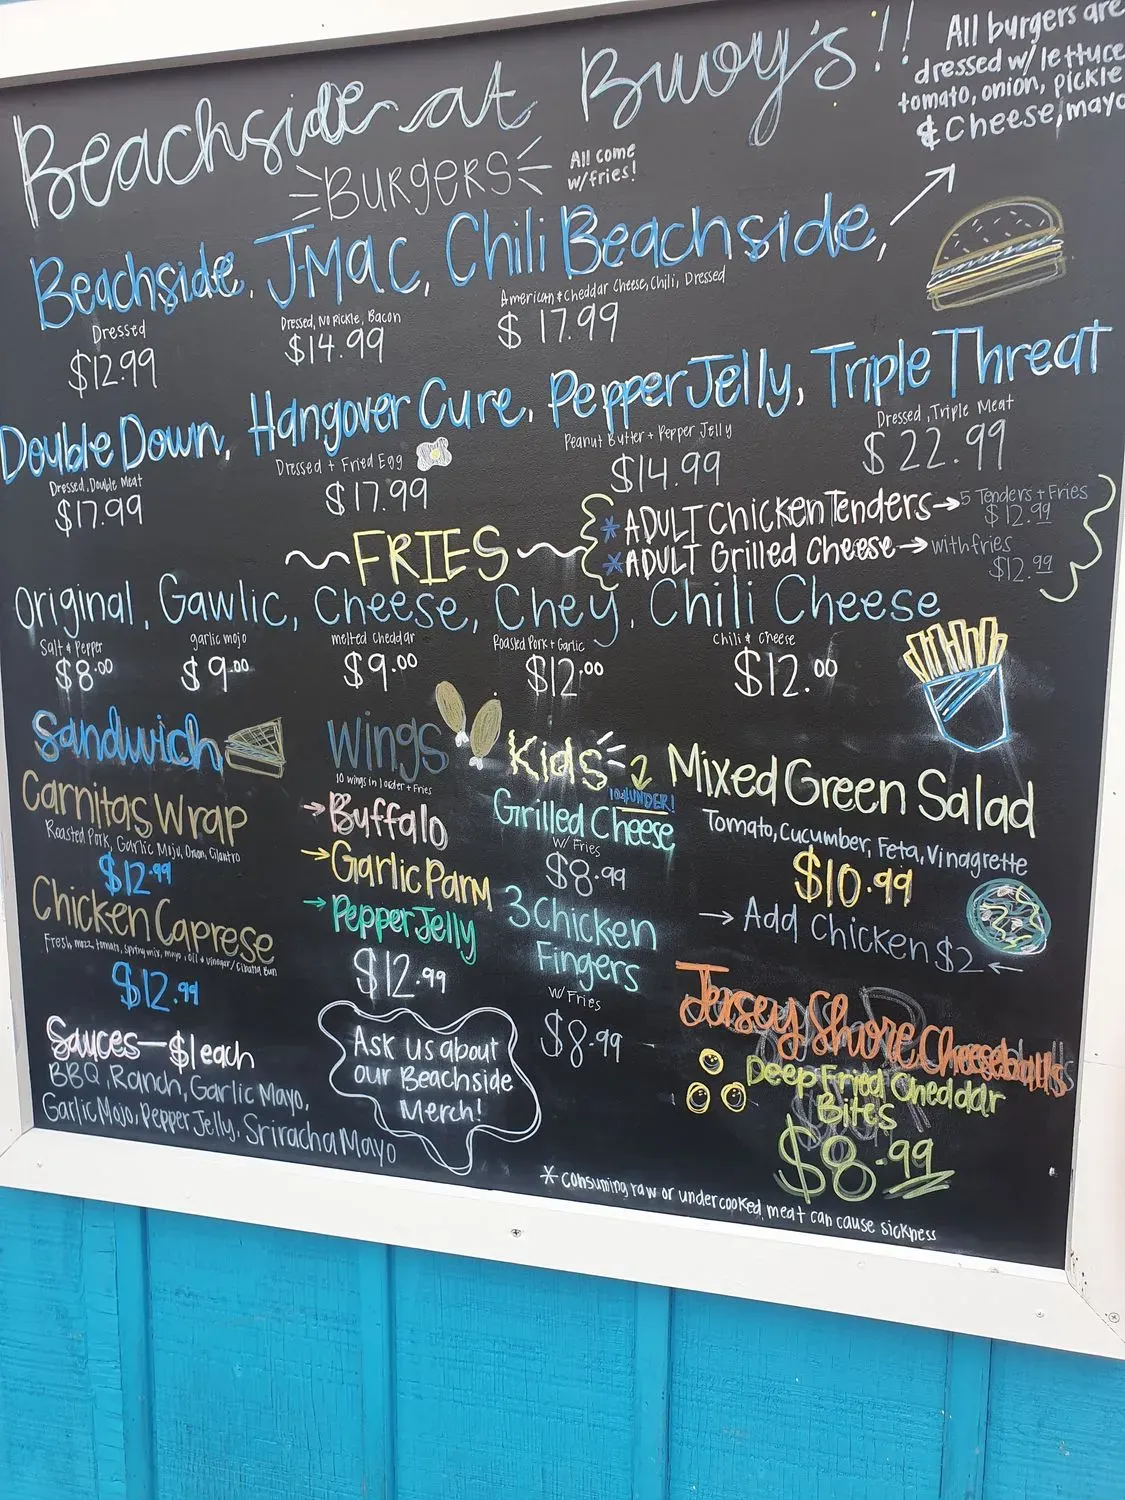 Beachside at Bwoy's!!
All burgers are
dressed w/ lettuce
tomato, onion, pickle
& Cheese, mayo
BURGERS
All come
w/fries!
Beachside, J-MAC, Chili Beachside,
Dressed
$12.99
Dressed, No Pickle, Bacon
$14.99
American & Cheddar Cheese, Chili, Dressed
$17.99
Double Down, Hangover Cure, Pepper Jelly, Triple Threat
Dressed, Double Meat
$17.99
Dressed + Fried Egg
$17.99
Peanut Butter + Pepper Jelly
$14.99
Dressed, Triple Meat
$22.99
* ADULT Chicken Tenders → 5 Tenders + Fries
$12.99
* ADULT Grilled Cheese → with fries
$12.99
FRIES
Original, Gawlic, Cheese, Chey, Chili Cheese
Salt & Pepper
$8.00
garlic mojo
$9.00
melted cheddar
$9.00
Roasted Pork + Garlic
$12.00
Chili & Cheese
$12.00
Sandwich
Carnitas Wrap
Roasted Pork, Garlic Mojo, Onion, Cilantro
$12.99
Chicken Caprese
Fresh mozz, tomato, spring mix, mayo, oil & vinegar/Cibatta Bun
$12.99
Sauces—$1 each
BBQ, Ranch, Garlic Mayo,
Garlic Mojo, Pepper Jelly, Sriracha Mayo
Wings
10 wings in 1 order + Fries
→ Buffalo
→ Garlic Parm
→ Pepper Jelly
$12.99
Ask us about
our Beachside
Merch!
Kids
10 & UNDER!
Grilled Cheese
w/ Fries
$8.99
3 Chicken
Fingers
w/ Fries
$8.99
Mixed Green Salad
Tomato, Cucumber, Feta, Vinagrette
$10.99
→ Add Chicken $2 ←
Jersey Shore Cheeseballs
Deep Fried Cheddar
Bites
$8.99
* consuming raw or undercooked meat can cause sickness